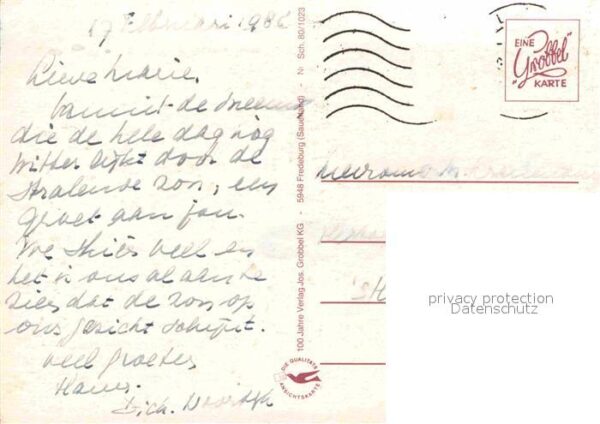 17 Februari 1986
Lieve Marie,
Vanuit de sneeuw
die de hele dag nog
witter lijkt door de
stralende zon, een
groet aan jou.
We skiën veel en
het is ons al aan te
zien dat de zon op
ons gezicht schijnt.
veel groetjes
Hans.
Dick.
100 Jahre Verlag Jos. Grobbel KG - 5948 Fredeburg (Sauerland) - Nr. Sch. 80/1023
EINE
Grobbel
KARTE
DIE QUALITÄTS
ANSICHTSKARTE
privacy protection
Datenschutz